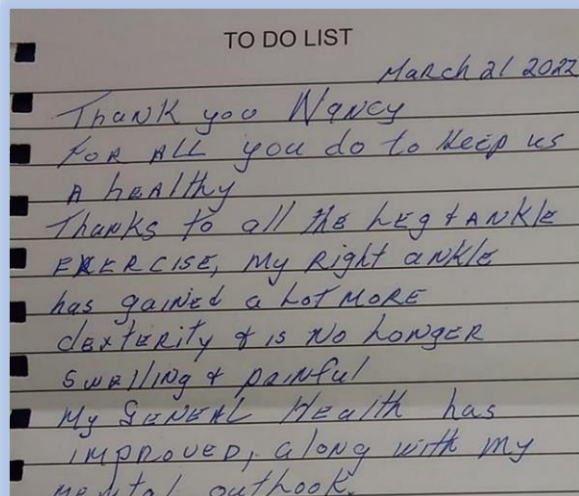 TO DO LIST
March 21 2022
Thank you Nancy
FOR ALL you do to keep us
A healthy
Thanks to all the Leg & ANKLE
EXERCISE, my Right ankle
has gained a Lot MORE
dexterity & is No Longer
swelling & painful
My General Health has
improved, along with my
mental outlook.